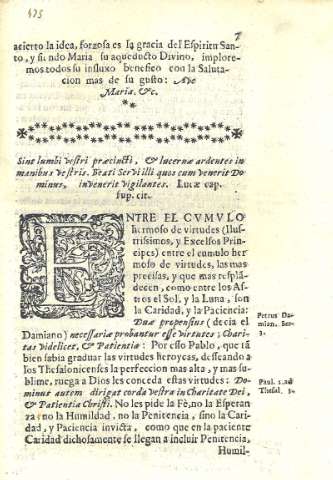 475
7
acierto la idea, forzosa es la gracia del Espiritu San-
to, y siendo Maria su aqueducto Divino, implore-
mos todos su influxo benefico con la Saluta-
cion mas de su gusto: Ave
Maria. &c.
Sint lumbi vestri præcincti, & lucernæ ardentes in
manibus vestris. Beati Servi illi quos cum venerit Do-
minus, invenerit vigilantes. Lucæ cap.
sup. cit.
ENTRE EL CVMVLO
hermoso de virtudes (Ilus-
trissimos, y Excelsos Prin-
cipes) entre el cumulo her
moso de virtudes, las mas
precisas, y que mas respla-
decen, como entre los As-
tros el Sol, y la Luna, son
la Caridad, y la Paciencia:
Duæ propensius (decia el
Damiano) necessariæ probantur esse virtutes; Chari-
tas videlicet, & Patientia: Por esso Pablo, que tā
bien sabia graduar las virtudes heroycas, desseando à
los Thesalonicenses la perfeccion mas alta, y mas su-
blime, ruega a Dios les conceda estas virtudes: Do-
minus autem dirigat corda vestra in Charitate Dei,
& Patientia Christi. No les pide la Fè, no la Esperan
za, no la Humildad, no la Penitencia, sino la Cari-
dad, y Paciencia invicta, como que en la paciente
Caridad dichosamente se llegan a incluir Penitencia,
Humil-
Petrus Da-
mian. Ser-
3.
Paul. 2. ad
Thesal. 3.